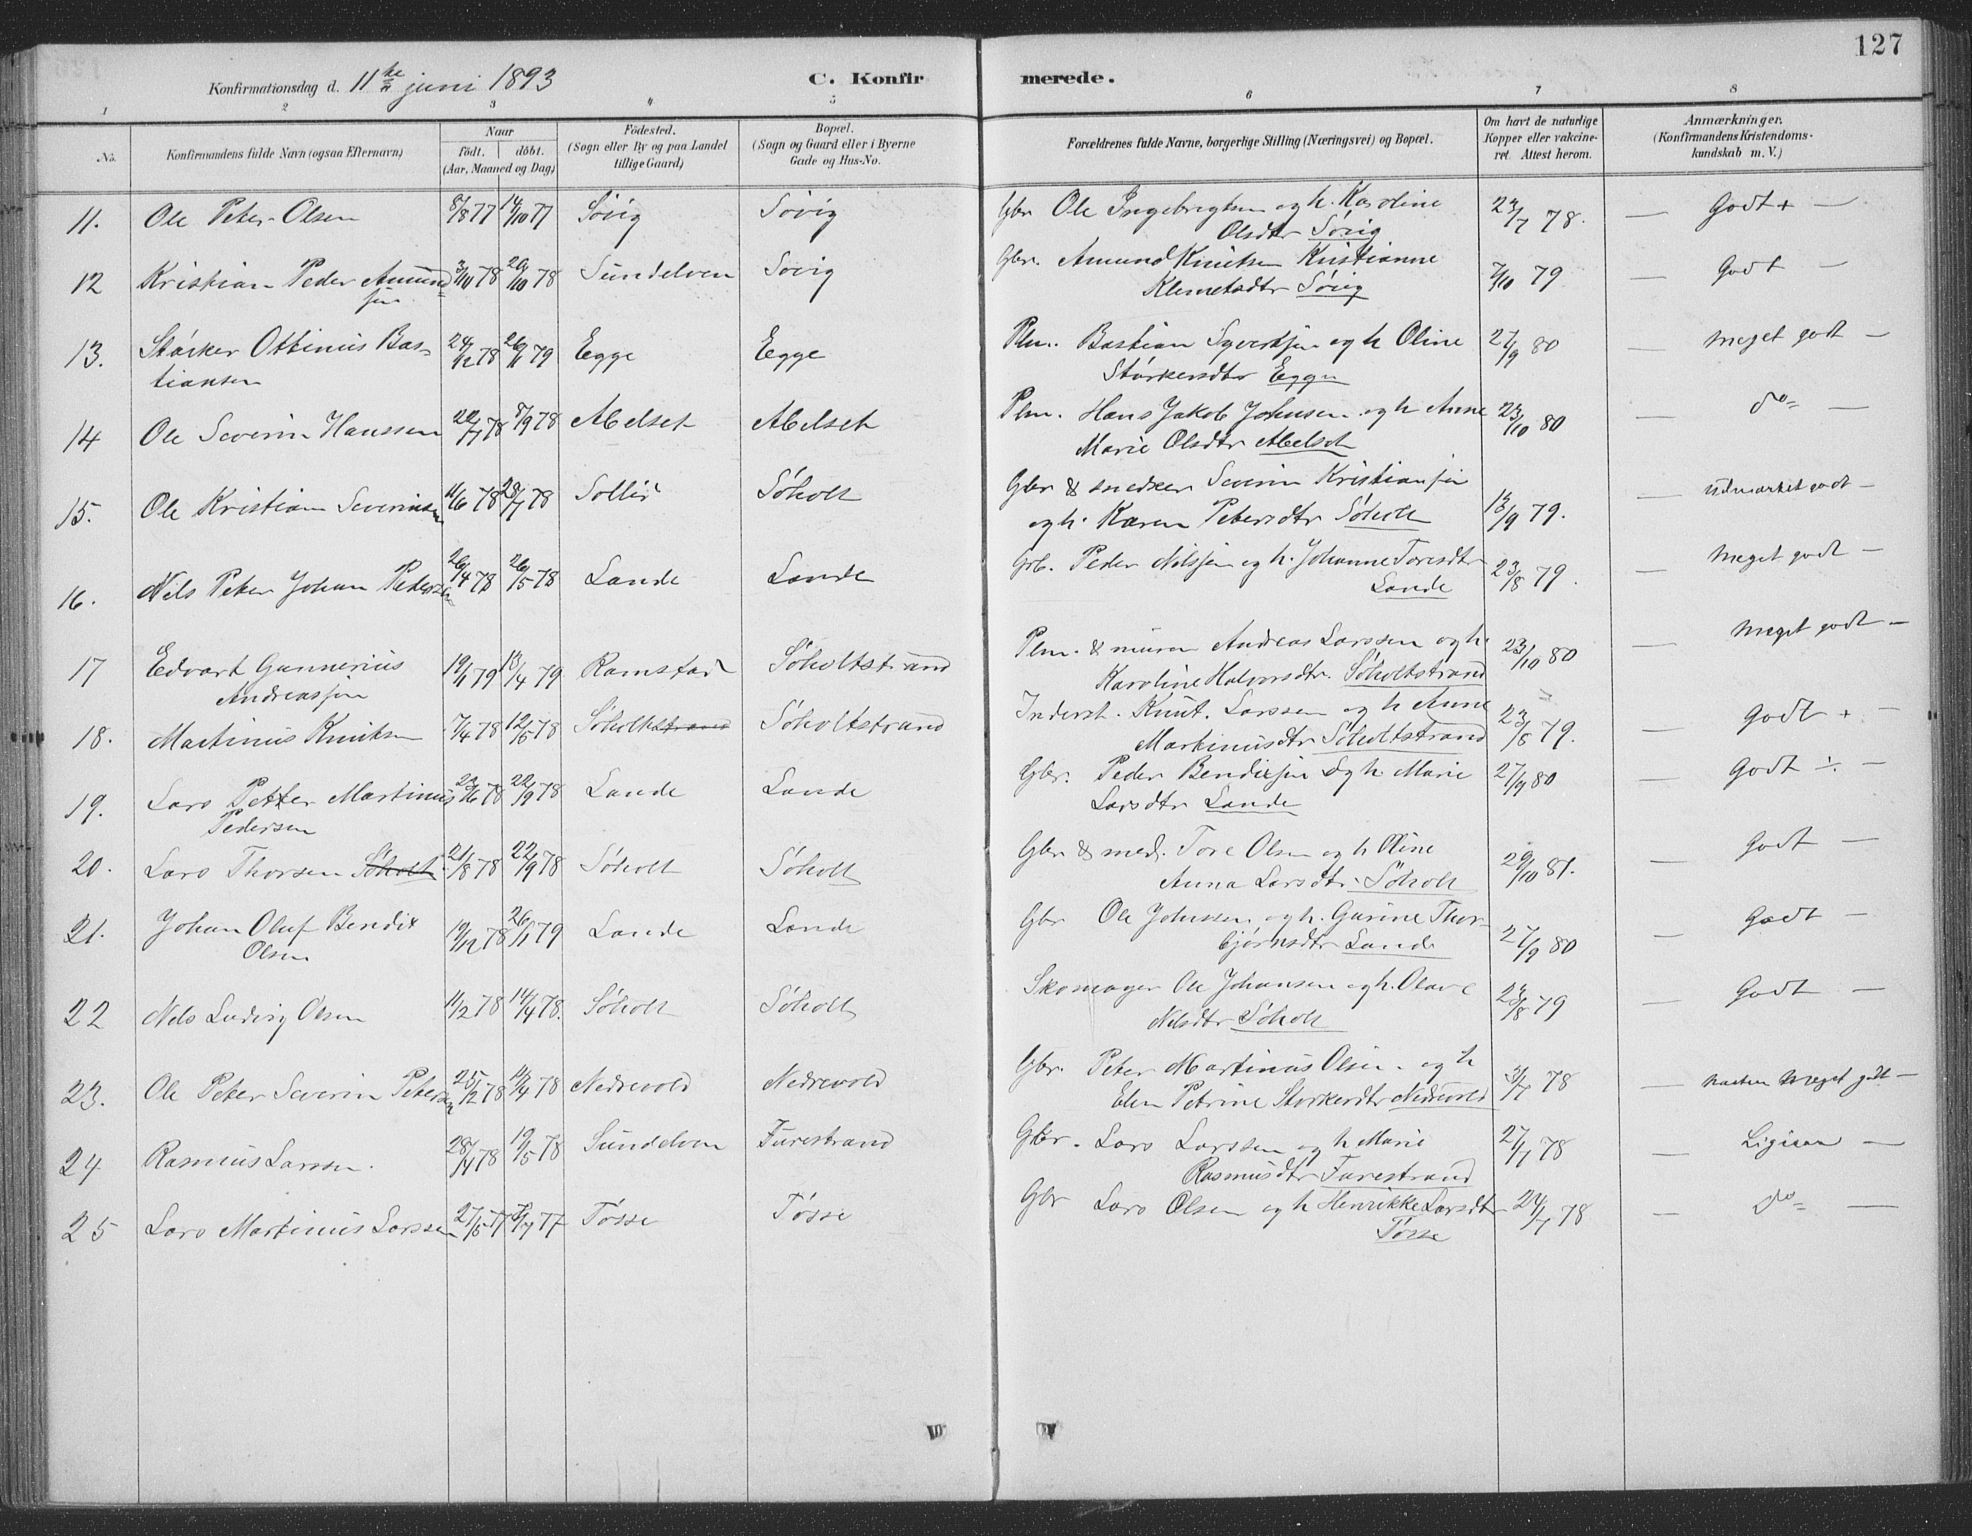 127
Konfirmationsdag d. 11te juni 1893 C. Konfirmerede.
1 2 3 4 5 6 7 8
No. Konfirmandens fulde Navn (ogsaa Efternavn) Naar födt. döbt. (Aar, Maaned og Dag) Födested. (Sogn eller By og paa Landet tillige Gaard) Bopæl. (Sogn og Gaard eller i Byerne Gade og Hus-No. Forældrenes fulde Navne, borgerlige Stilling (Næringsvei) og Bopæl. Om havt de naturlige Kopper eller vakcineret. Attest herom. Anmærkninger. (Konfirmandens Kristendomskundskab m. V.)
11. Ole Peter Olsen 8/8 77 14/10 77 Søvig Søvig Gbr Ole Ingebregtsen og h. Karoline 24/7 78. — Godt + —
Olsdtr Søvig
12 Kristian Peder Amund= 3/10 78 20/10 78 Sundelven Søvig Gbr. Amund Knutsen Kristianne 7/10 79. — Godt —
sen Klemetsdtr Søvig
13. Stärker Ottinus Bas- 24/12 78 26/1 79 Egge Egge Plm. Bastian Syvertsen og h Oline 27/9 80 — Meget godt —
tiansen Störkersdtr Egge
14 Ole Severin Hanssen 22/7 78 8/9 78 Abelset Abelset Plm. Hans Jakob Johnsen og h Anne 23/10 80 — do= —
Marie Olsdtr Abelset
15. Ole Kristian Severinsen 11/6 78 28/7 78 Sollid Søholt Gbr & snedker Severin Kristiansen
og h. Karen Petersdtr Søholt 13/9 79. — udmærket godt —
16. Nils Peter Johan Pedersen 26/4 78 26/5 78 Lande Lande Grb. Peder Nilssen og h. Johanne Toresdtr 23/8 79. — Meget godt —
Lande
17 Edvart Gunnerius 19/1 79 13/4 79 Ramstad Søholtstrand Plm. & murer Andreas Larssen og h. 23/10 80 — Meget godt —
Andreassen Karoline Halvorsdtr. Søholtstrand
18. Martinus Knutsen 7/4 78 12/5 78 Søholtstrand Søholtstrand Inderst. Knut. Larssen og h Anne 23/8 79. — Godt + —
Martinusdtr Søholtstrand
19. Lars Petter Martinus 22/6 78 22/9 78 Lande Lande Gbr. Peder Bendixsen og h Marie 27/9 80 — Godt ÷ —
Pedersen Larsdtr Lande
20. Lars Thorsen Søholt 21/8 78 22/9 78 Søholt Søholt Gbr & med. Tore Olsen og h Oline 29/10 81. — Godt —
Anna Larsdtr. Søholt
21. Johan Oluf Bendix 19/12 78 26/1 79 Lande Lande Gbr Ole Johnssen og h. Gurine Thor- 27/9 80 — Godt —
Olsen bjørnsdtr Lande
22 Nils Ludvig Olsen 11/2 78 14/4 78. Søholt Søholt Skomager Ole Johansen og h. Olave 23/8 79 — Godt —
Nilsdtr Søholt
23. Ole Peter Severin Petersen 25/12 78 14/4 78 Nedrevold Nedrevold Gbr. Peter Martinus Olsen og h 3/7 78 — næsten Meget godt —
Elen Petrine Storkerdtr Nedrevold
24 Rasmus Larssen. 28/4 78 19/5 78 Sundelven Furestrand Gbr. Lars Larssen og h Marie 27/7 78 — Ligesaa —
Rasmusdtr Furestrand
25 Lars Martinus Larssen 27/5 77 8/7 77 Tøsse Tøsse Gbr Lars Olsen og h Henrikke Larsdtr 24/7 78 — do= —
Tøsse